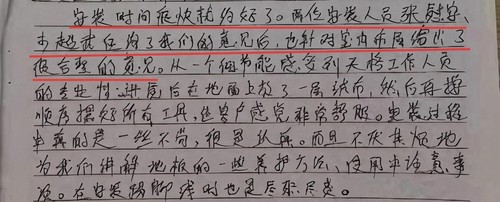 安装时间很快就约好了。两位安装人员张
李超武征询了我们的意见后，也针对室内布局给出了
很合理的意见。从一个细节能感受到天格工作人员
的专业性，进屋后在地面上放了一层绒布，然后再按
顺序摆好所有工具，让客户感觉非常舒服。安装过程
中真的是一丝不苟，很是认真。而且不厌其烦地
为我们讲解地板的一些养护方法、使用中注意事
项。在安装踢脚线时也是尽职尽责。